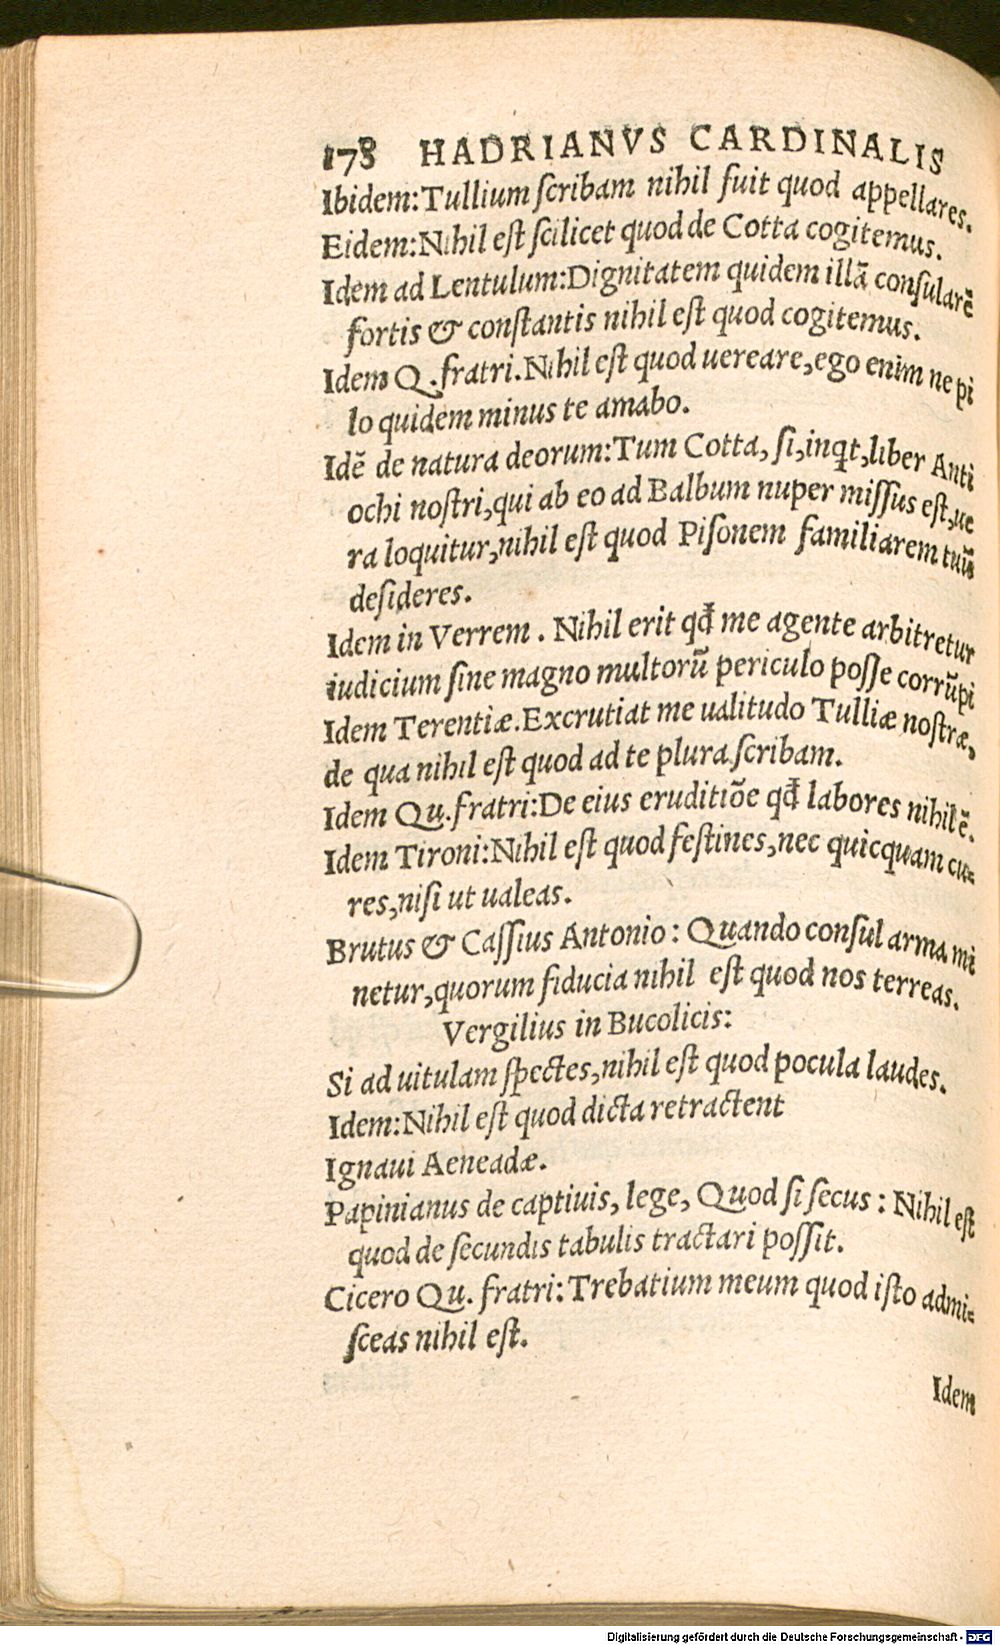 178 HADRIANVS CARDINALIS
Ibidem:Tullium ſcribam nihil fuit quod appellares.
Eidem:Nihil eſt ſcilicet quod de Cotta cogitemus.
Idem ad Lentulum:Dignitatem quidem illā conſularē
fortis & conſtantis nihil eſt quod cogitemus.
Idem Q.fratri.Nihil eſt quod uereare,ego enim ne pi
lo quidem minus te amabo.
Idē de natura deorum:Tum Cotta, ſi,inqt,liber Anti
ochi noſtri,qui ab eo ad Balbum nuper miſſus eſt,ue
ra loquitur,nihil eſt quod Piſonem familiarem tuū
deſideres.
Idem in Verrem. Nihil erit qd̄ me agente arbitretur
iudicium ſine magno multorū periculo poſſe corrūpi
Idem Terentiæ.Excrutiat me ualitudo Tulliæ noſtræ,
de qua nihil eſt quod ad te plura ſcribam.
Idem Qu.fratri:De eius eruditiōe qd̄ labores nihil ē.
Idem Tironi:Nihil eſt quod feſtines,nec quicquam cu=
res,niſi ut ualeas.
Brutus & Caſſius Antonio: Quando conſul arma mi
netur,quorum fiducia nihil eſt quod nos terreas.
Vergilius in Bucolicis:
Si ad uitulam ſpectes,nihil eſt quod pocula laudes.
Idem:Nihil eſt quod dicta retractent
Ignaui Aeneadæ.
Papinianus de captiuis, lege, Quod ſi ſecus: Nihil eſt
quod de ſecundis tabulis tractari poſſit.
Cicero Qu. fratri:Trebatium meum quod iſto admi=
ſceas nihil eſt.
Idem
Digitalisierung gefördert durch die Deutsche Forschungsgemeinschaft - DFG